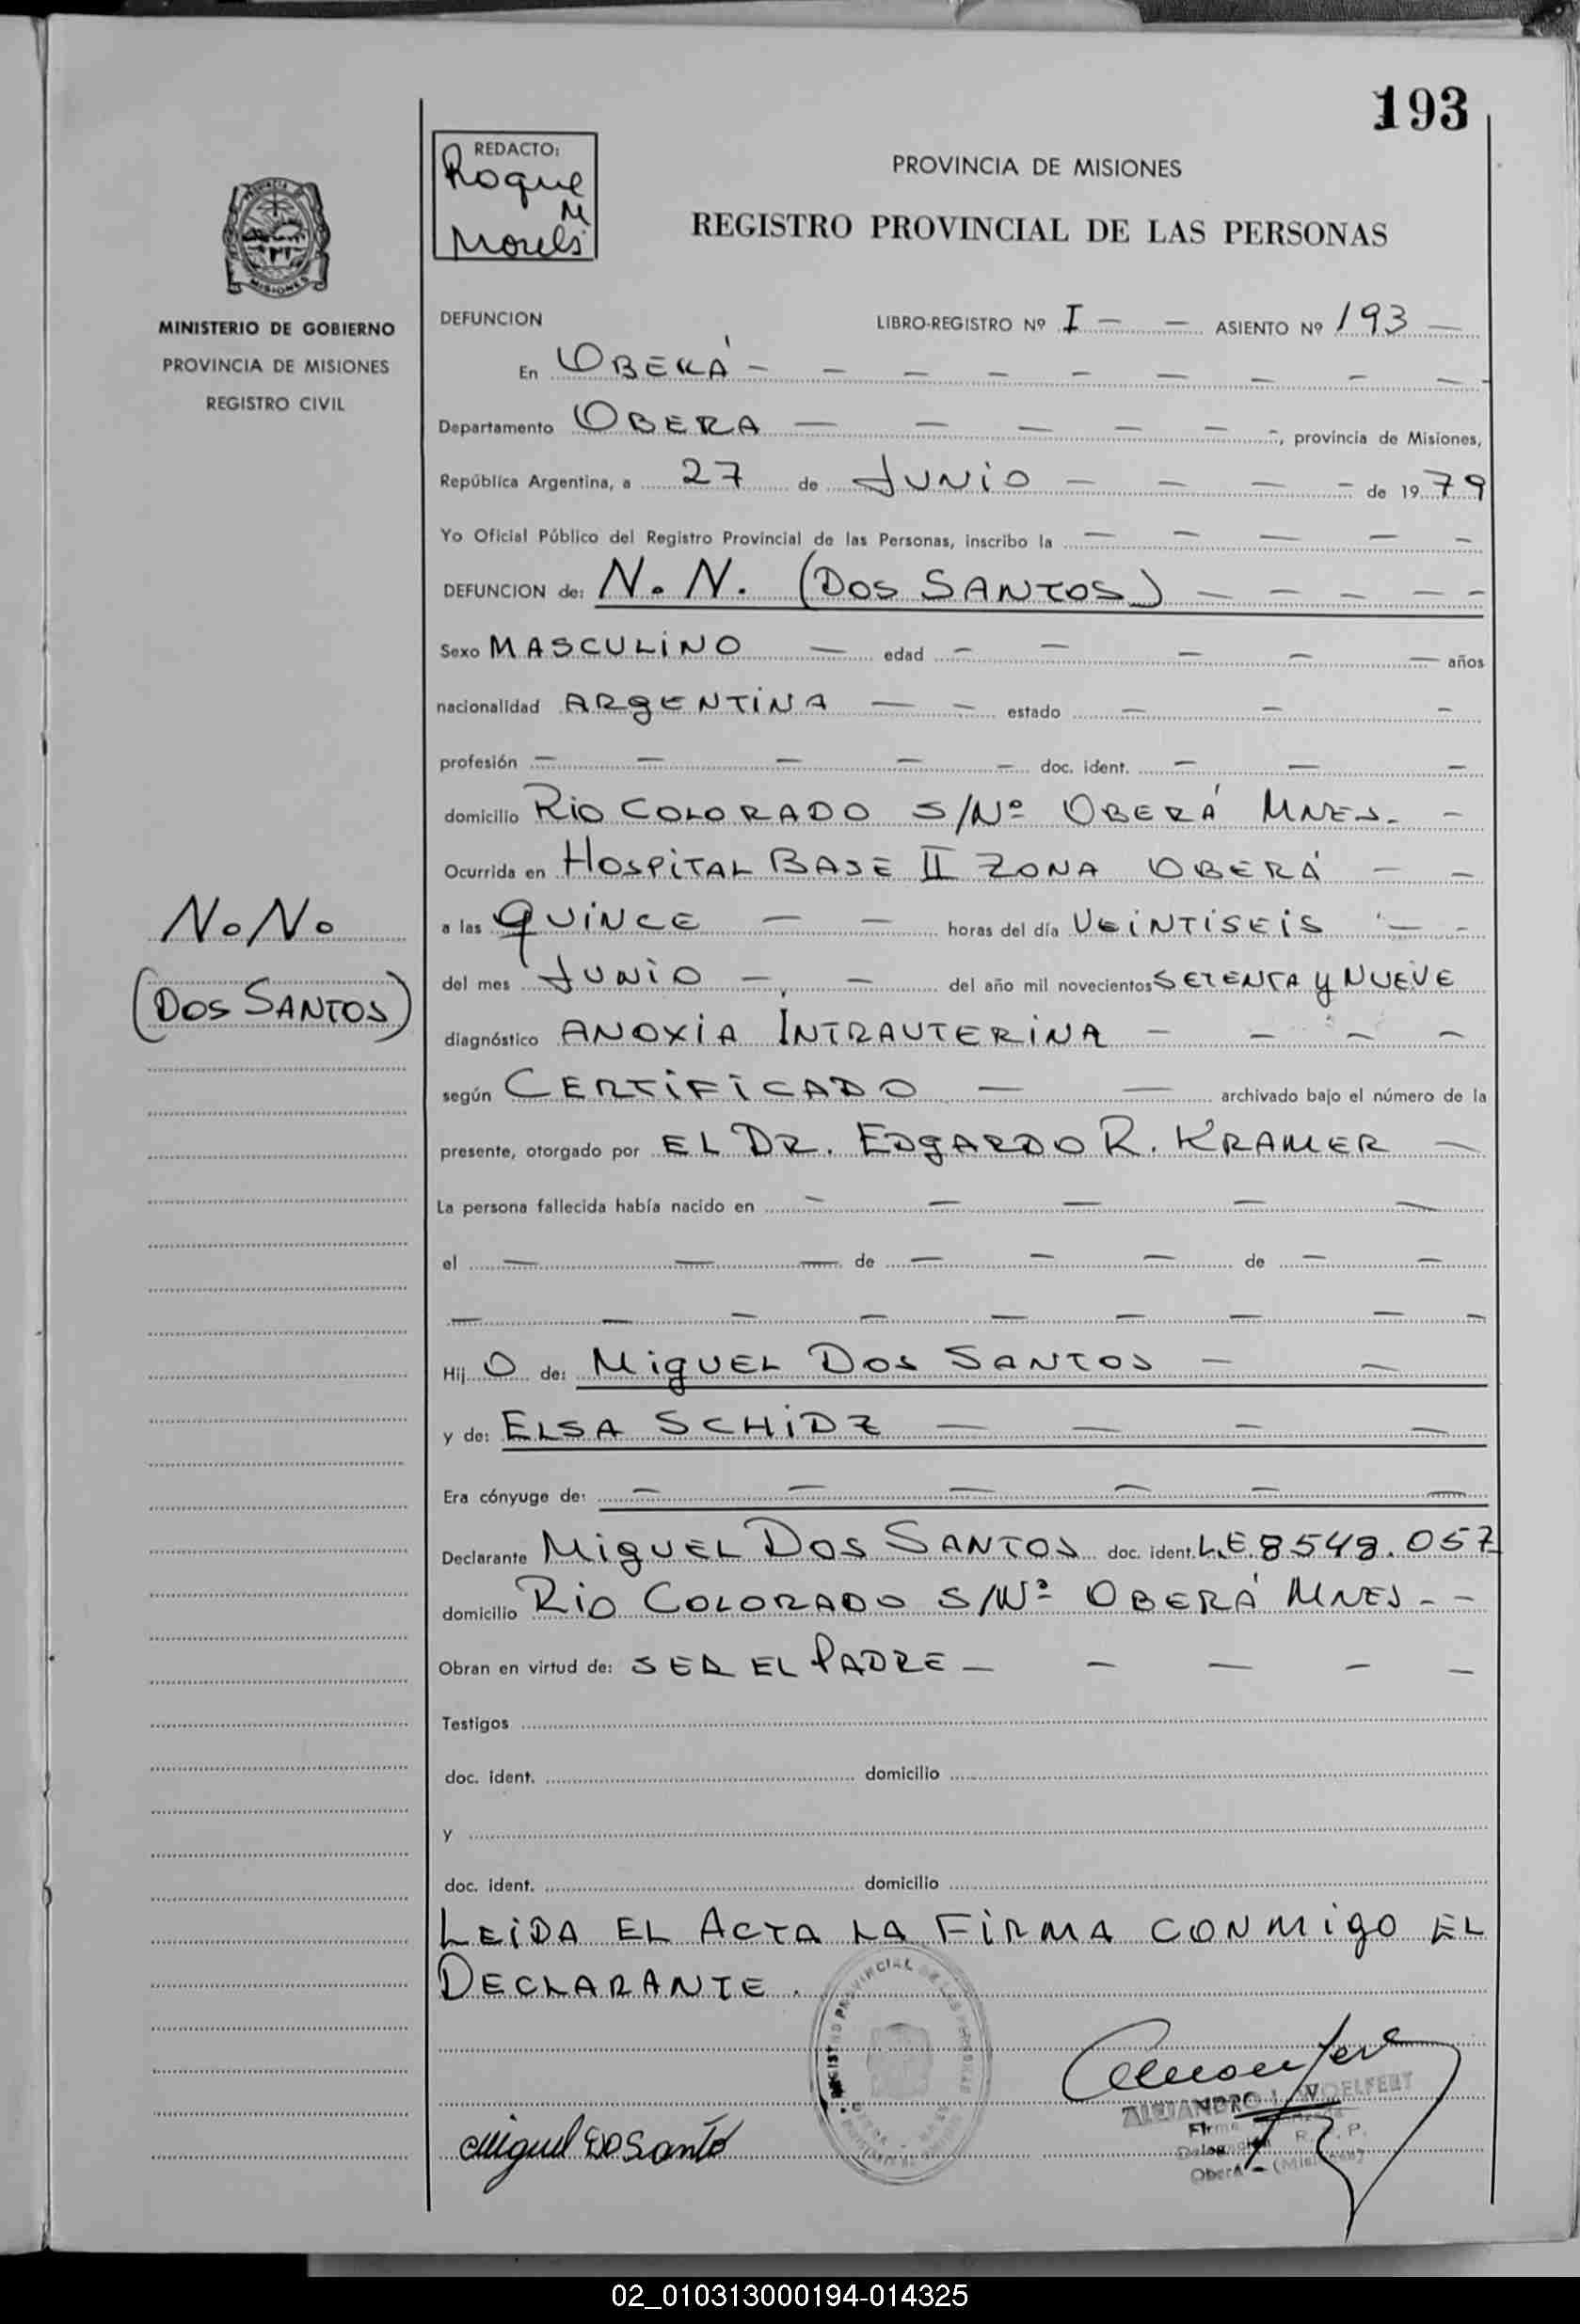 193
REDACTO:
Roque
M
PROVINCIA DE MISIONES
REGISTRO PROVINCIAL DE LAS PERSONAS
MISIONES
MINISTERIO DE GOBIERNO
PROVINCIA DE MISIONES
REGISTRO CIVIL
DEFUNCION LIBRO-REGISTRO Nº I - - ASIENTO Nº 193 -
En OBERÁ - - - - - - - - -
Departamento OBERA - - - - - -, provincia de Misiones,
República Argentina, a 27 de JUNIO - - - - de 1979
Yo Oficial Público del Registro Provincial de las Personas, inscribo la - - - - -
DEFUNCION de: N. N. (DOS SANTOS) - - - - -
Sexo MASCULINO - edad - - - - - años
nacionalidad ARGENTINA - - estado - - -
profesión - - - - - doc. ident. - - -
domicilio RIO COLORADO S/Nº OBERÁ MNES. -
Ocurrida en HOSPITAL BASE II ZONA OBERÁ - -
N. N.
a las QUINCE - - horas del día VEINTISEIS - -
del mes JUNIO - - del año mil novecientos SETENTA Y NUEVE
(DOS SANTOS)
diagnóstico ANOXIA INTRAUTERINA - - - -
según CERTIFICADO - - archivado bajo el número de la
presente, otorgado por EL DR. EDGARDO R. KRAMER -
La persona fallecida había nacido en - - - - -
el - - - de - - - de - -
- - - - - - - - -
Hij O de: MIGUEL DOS SANTOS - -
y de: ELSA SCHIDZ - - - -
Era cónyuge de: - - - - - -
Declarante MIGUEL DOS SANTOS doc. ident. L.E. 8548.057
domicilio RIO COLORADO S/Nº OBERÁ MNES - -
Obran en virtud de: SER EL PADRE - - - - -
Testigos
doc. ident. domicilio
y
doc. ident. domicilio
LEIDA EL ACTA LA FIRMA CONMIGO EL
DECLARANTE.
ALEJANDRO L. WOELFERT
Miguel Do Santo
02_010313000194-014325